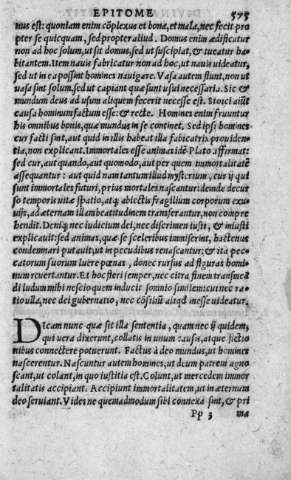 EPITOME 575
nus est: quoniam enim cõplexus est bona, et mala, nec fecit pro
pter se quicquam, sed propter aliud. Domus enim ædificatur
non ad hoc solum, ut sit domus, sed ut suscipiat, & tueatur ha-
bitantem. Item nauis fabricatur non ad hoc, ut nauis uideatur,
sed ut in ea possint homines nauigare. Vasa autem fiunt, non ut
uasa sint solum, sed ut capiant quæ sunt usui necessaria. Sic &
mundum deus ad usum aliquem fecerit necesse est. Stoici aiũt
causa hominum factum esse: & recte. Homines enim fruuntur
his omnibus bonis, quæ mundus in se continet. Sed ipsi homines
cur facti sint, aut quid in illis habeat illa fabricatrix prouiden-
tia, non explicant. Immortales esse animas idẽ Plato affirmat:
sed cur, aut quando, aut quomodo, aut per quem immortalitatẽ
assequantur: aut quid nam tantum illud mysterium, cur ij qui
sunt immortales futuri, prius mortales nascantur: deinde decur
so temporis uitæ spatio, atq; abiectis fragilium corporum exu-
uijs, ad æternam illam beatitudinem transferantur, non compre
hendit. Deniq; nec iudicium dei, nec discrimen iusti, & iniusti
explicauit: sed animas, quæ se sceleribus immiserint, hactenus
condemnari putauit, ut in pecudibus renascantur: & ita pec-
catorum suorum luere pœnas, donec rursus ad figuras homi-
num reuertantur. Et hoc fieri semper, nec citra finem transmeã
di ludum mihi nescio quem inducit somnio similem: cui nec ra
tio ulla, nec dei gubernatio, nec cõsiliũ aliqd inesse uideatur.
DIcam nunc quæ sit illa sententia, quam nec ij quidem,
qui uera dixerunt, collatis in unum causis, atque rationibus
connectere potuerunt. Factus à deo mundus, ut homines
nascerentur. Nascuntur autem homines, ut deum patrem agno
scant, ut colant, in quo iustitia est. Colunt, ut mercedem immor
talitatis accipiant. Accipiunt immortalitatem, ut in æternum
deo seruiant. Vides ne quemadmodum sibi connexa sint, & pri
Pp 3 ma